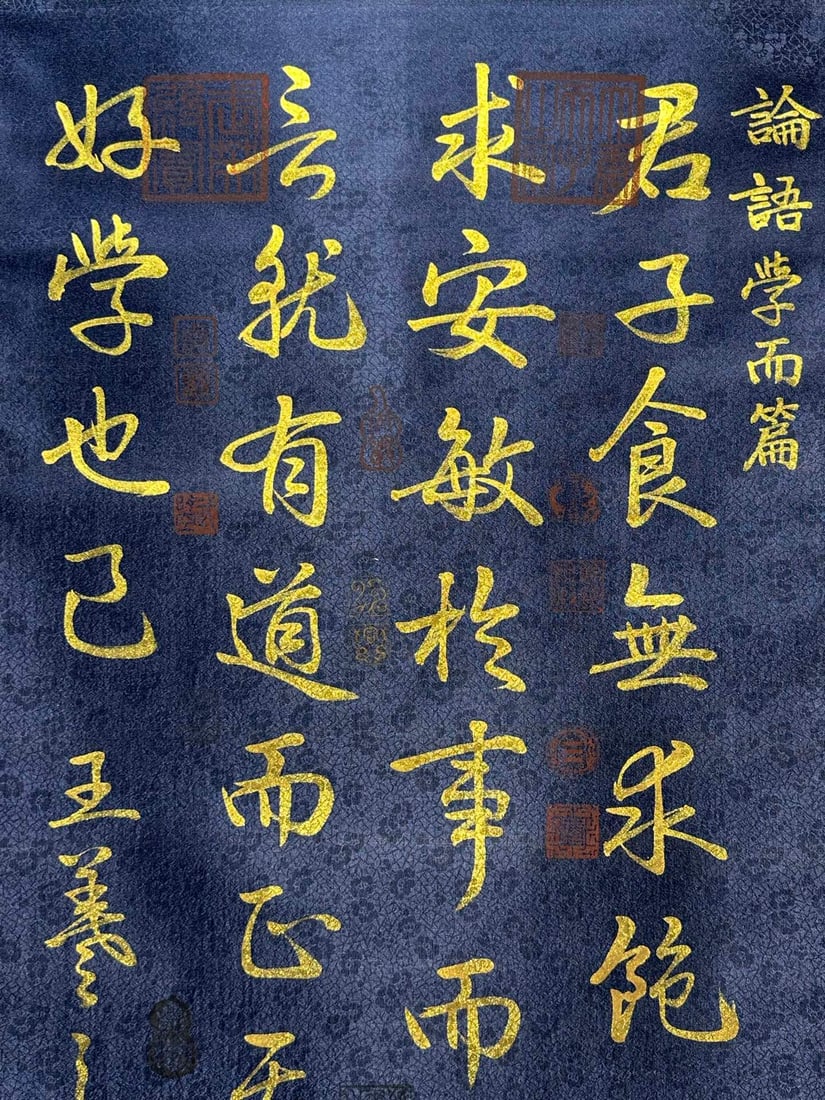 論語学而篇
君子食無求飽
求安敏於事而
言就有道而正
好学也已
王羲